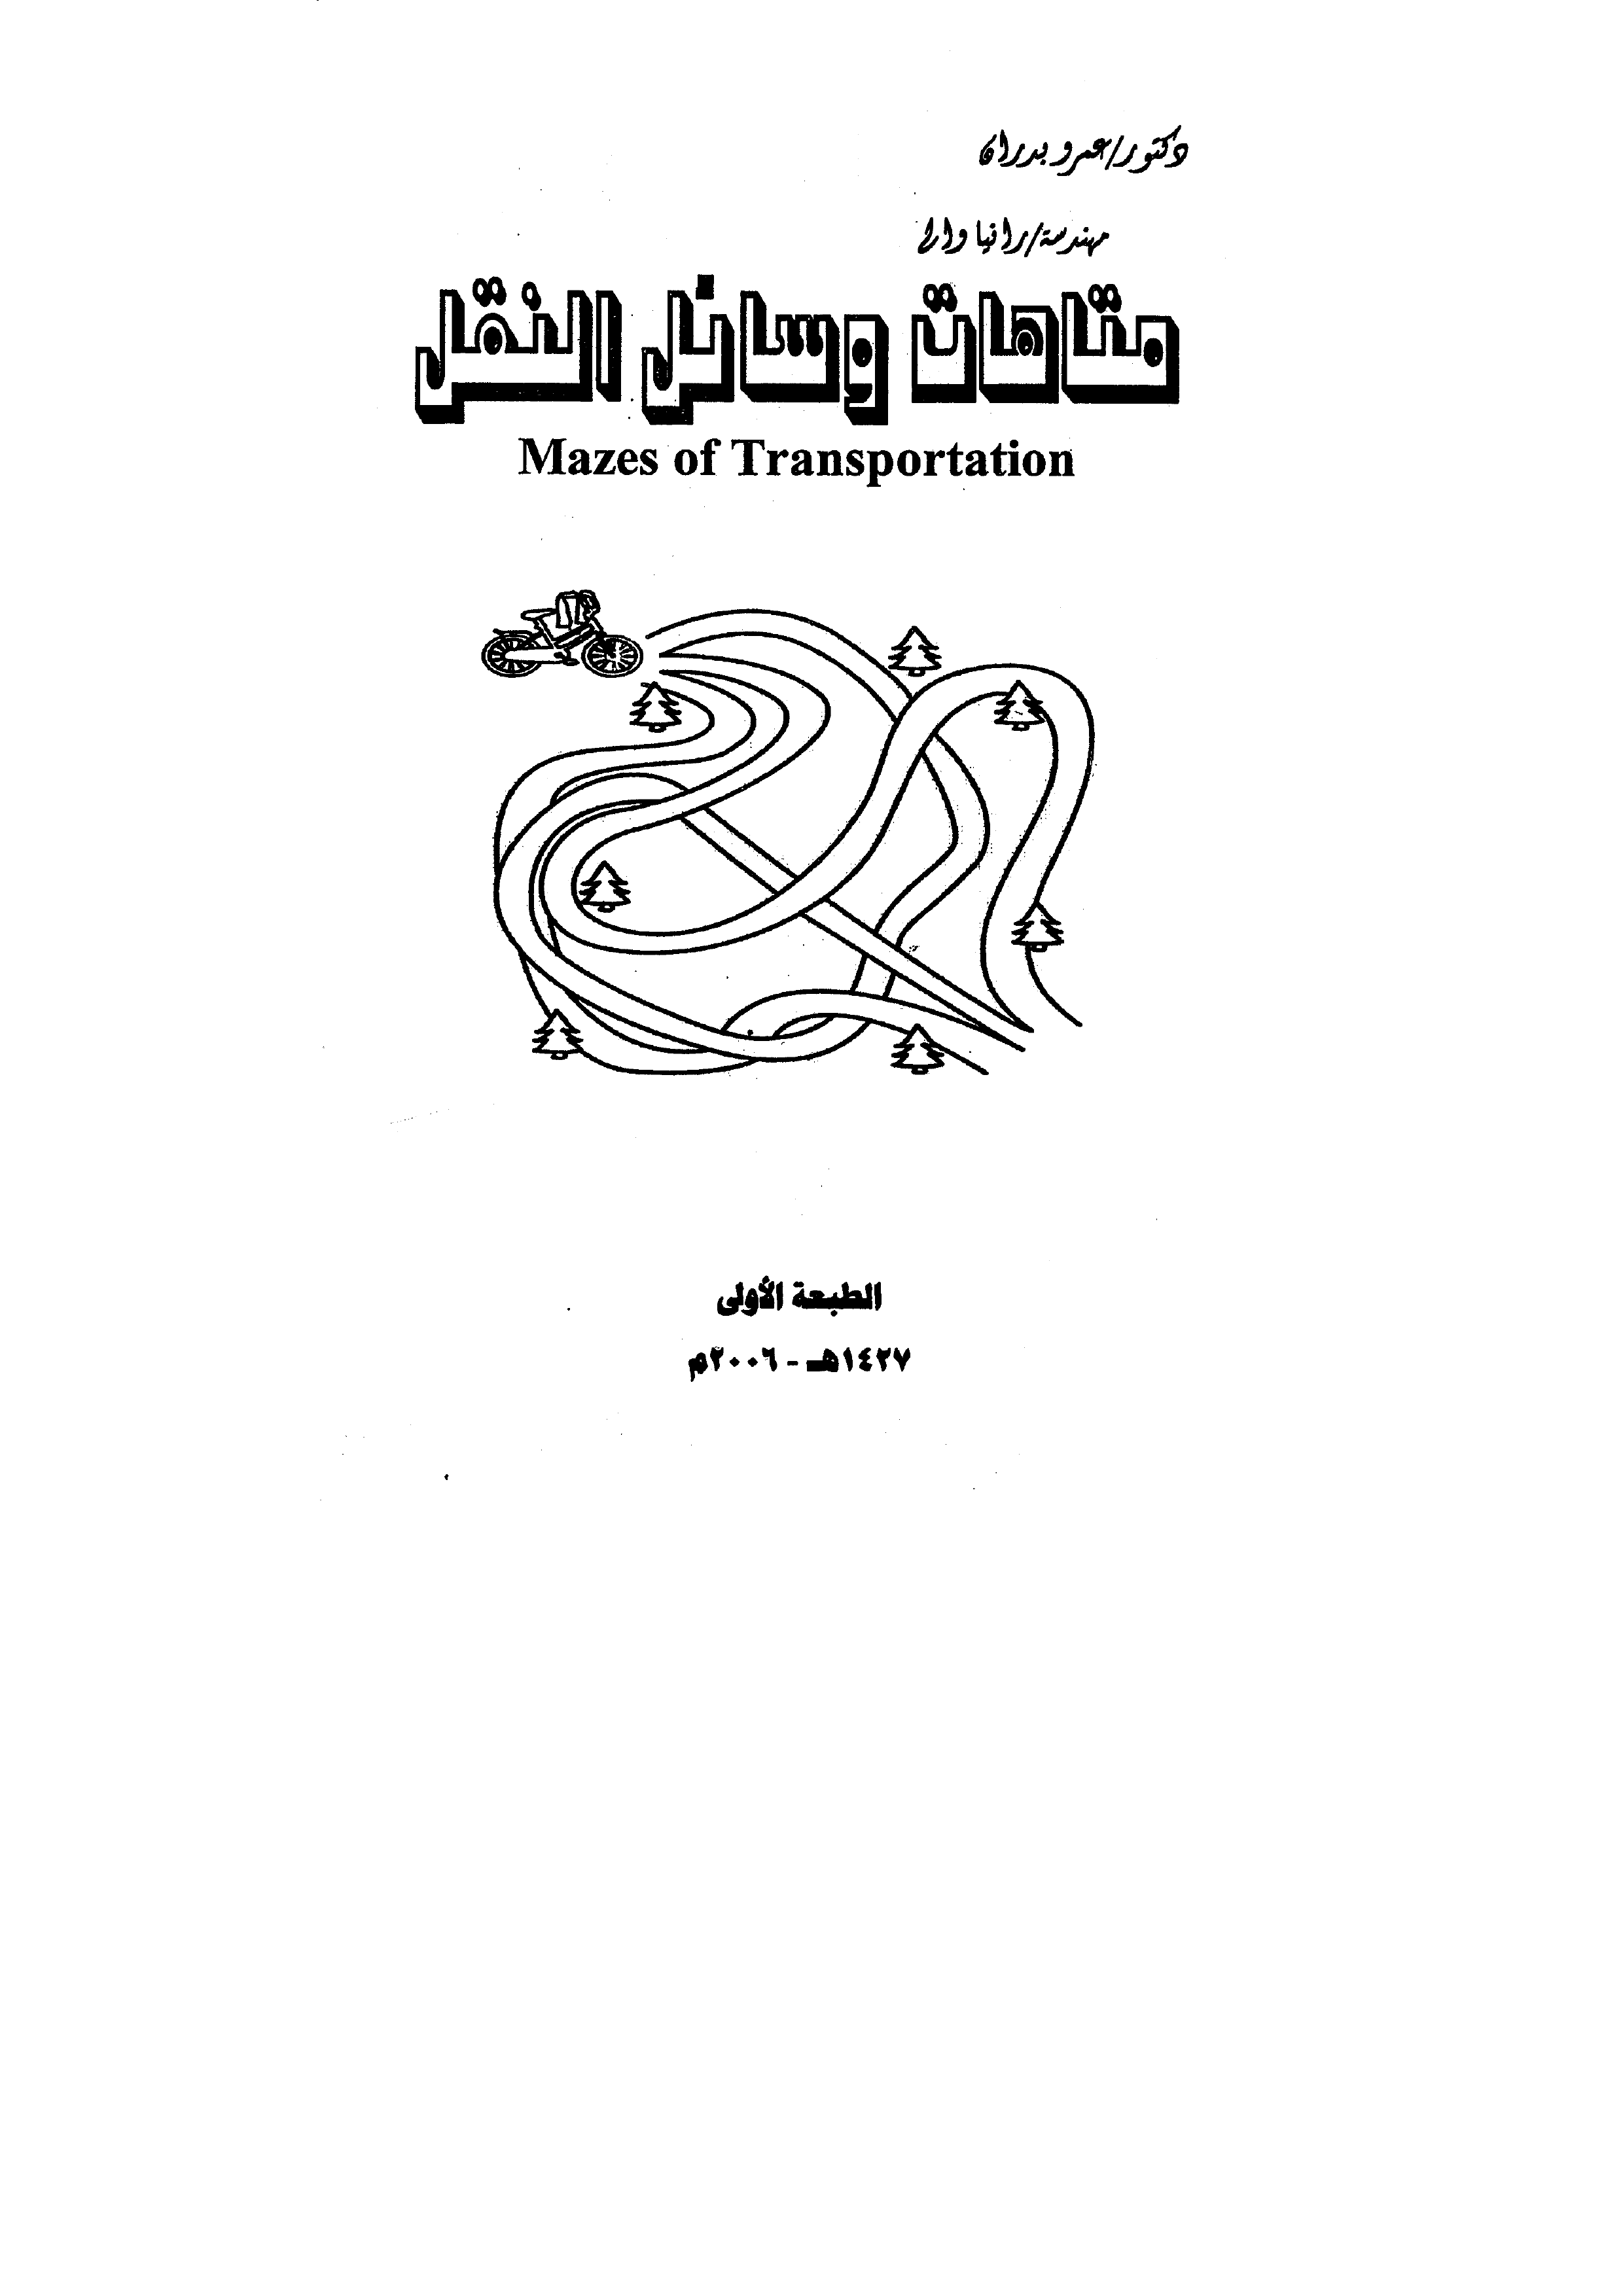 دكتور/عمرو بدران
مهندسة/رانيا وائل
متاهات وسائل النقل
Mazes of Transportation
الطبعة الأولى
١٤٢٧هـ - ٢٠٠٦م